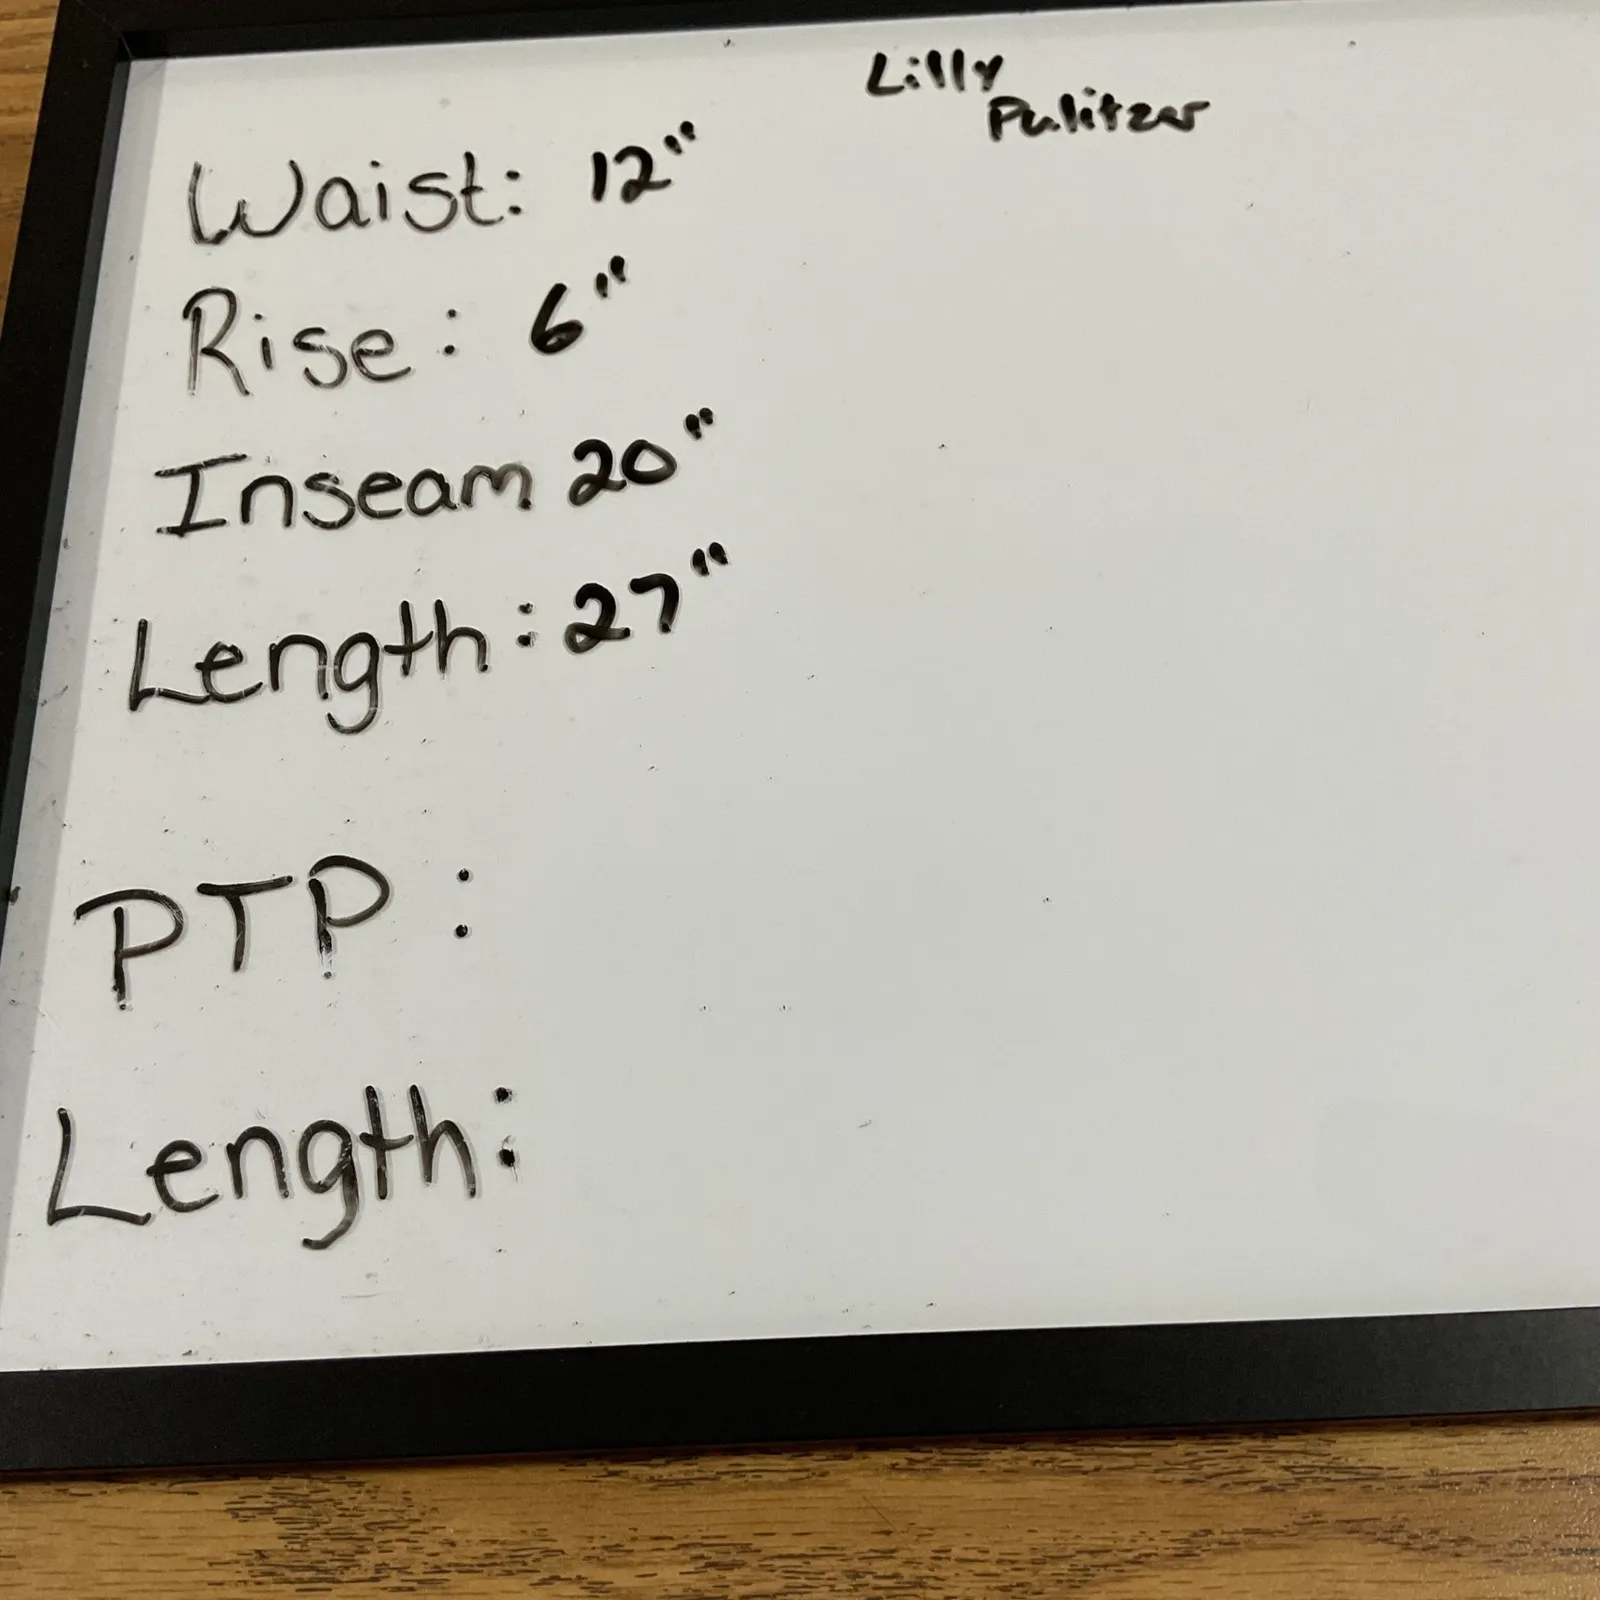 Lilly
Pulitzer
Waist: 12"
Rise: 6"
Inseam 20"
Length: 27"
PTP:
Length: